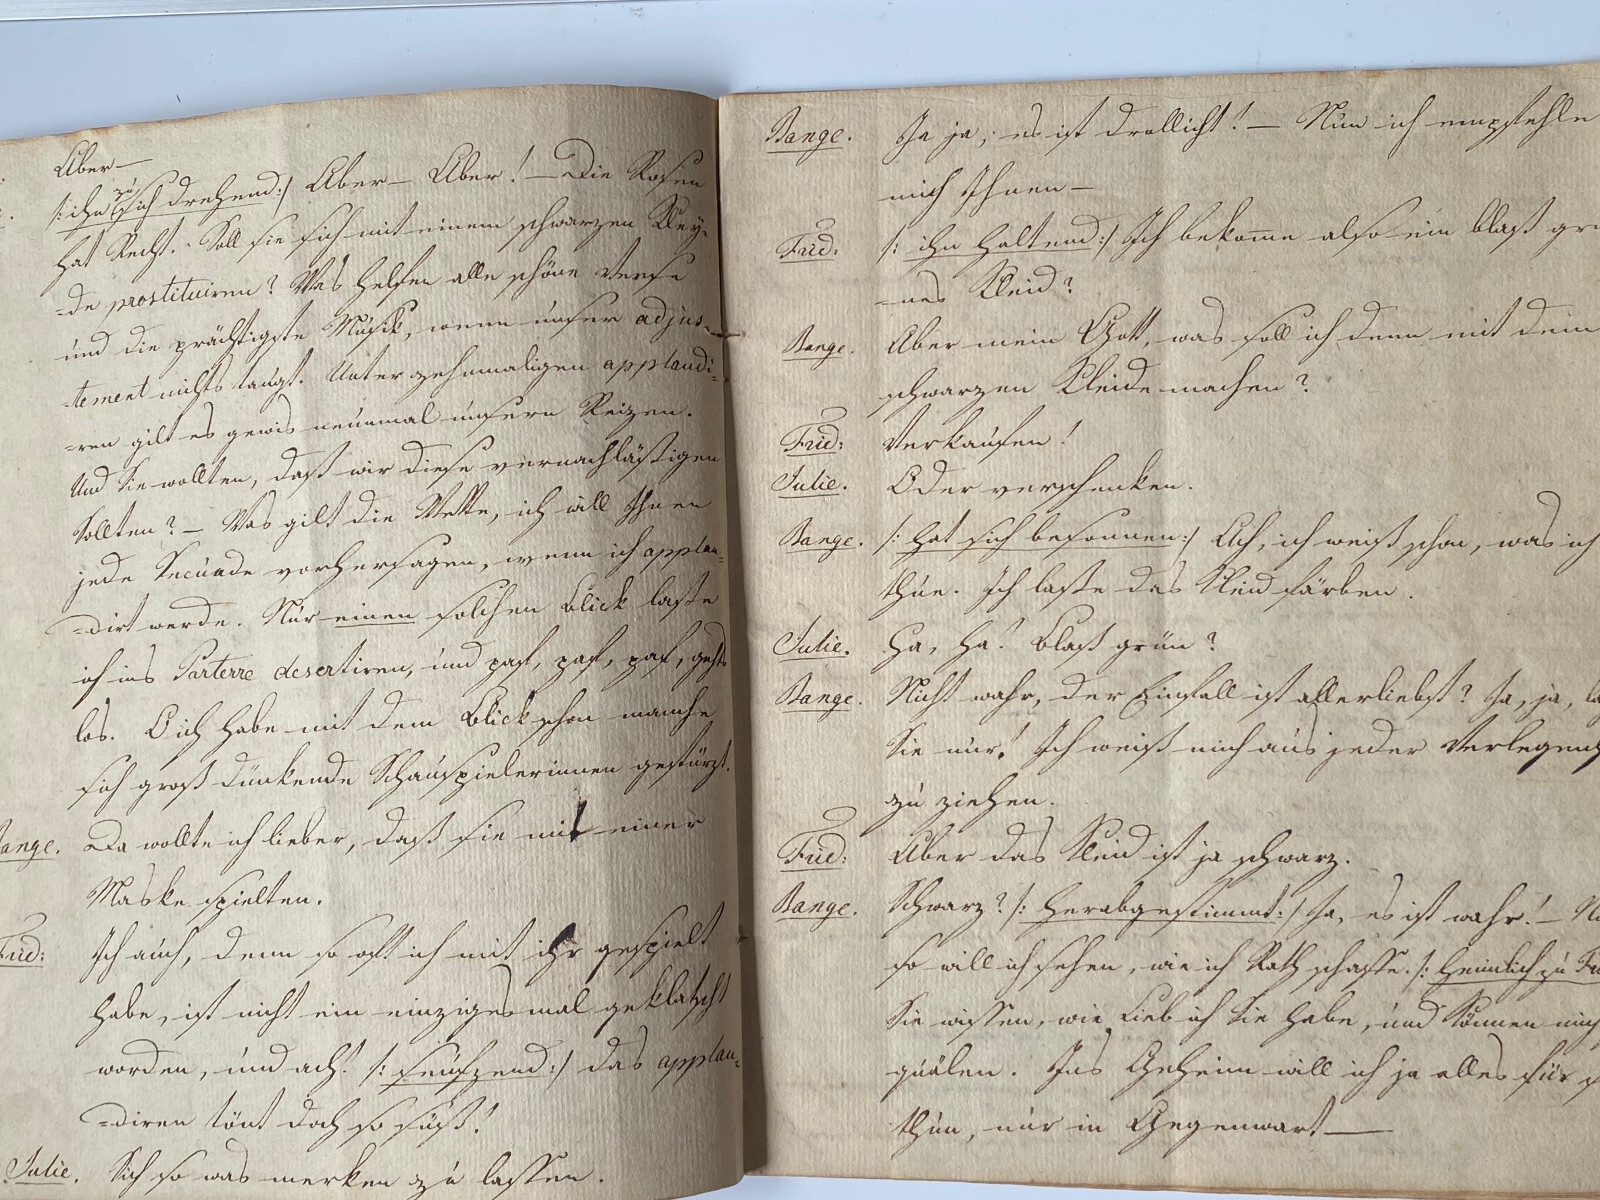 Aber—
/: ihn zu sich drehend :/ Aber— Aber! — Die Rosen
hat Recht. Soll sie sich mit einem schwarzen Kley-
-de prostituiren? Was helfen alle schöne Verse
und die prächtigste Musik, wenn unser adjus-
-tement nichts taugt. Unter zehnmaligen applaudi-
-ren gilt es gewis neunmal unsern Reizen.
Und Sie wollten, daß wir diese vernachläßigen
sollten? — Was gilt die Wette, ich will Ihnen
jede Secunde vorhersagen, wenn ich applau-
-dirt werde. Nur einen solchen Blick laße
ich ins Parterre desertiren, und paf, paf, paf, gehts
los. O ich habe mit dem Blick schon manche
sich groß dünkende Schauspielerinnen gestürzt.
Bange. Da wollte ich lieber, daß sie mit einer
Maske spielten.
Frid: Ich auch, denn so oft ich mit ihr gespielt
habe, ist nicht ein einziges mal geklatscht
worden, und ach! /: seufzend :/ das applau-
-diren tönt doch so süß!
Julie. Sich so was merken zu lassen.
Bange. Ja ja, es ist drollicht! — Nun ich empfehle
mich Ihnen —
Frid: /: ihn haltend :/ Ich bekomme also ein blaß grü
-nes Kleid?
Bange. Aber mein Gott, was soll ich denn mit dem
schwarzen Kleide machen?
Frid: Verkaufen!
Julie. Oder verschenken.
Bange. /: hat sich besonnen :/ Ach, ich weiß schon, was ich
thue. Ich laße das Kleid färben.
Julie. Ha, ha! blaß grün?
Bange. Nicht wahr, der Einfall ist allerliebst? Ja, ja, la
Sie nur! Ich weiß mich aus jeder Verlegenh
zu ziehen.
Frid: Aber das Kleid ist ja schwarz.
Bange. Schwarz? /: herabgestimmt :/ Ja, es ist wahr! — Nu
so will ich sehen, wie ich Rath schaffe. /: heimlich zu Fr
Sie wissen, wie lieb ich Sie habe, und können mich
quälen. Ins Geheim will ich ja alles für
thun, nur in Gegenwart —